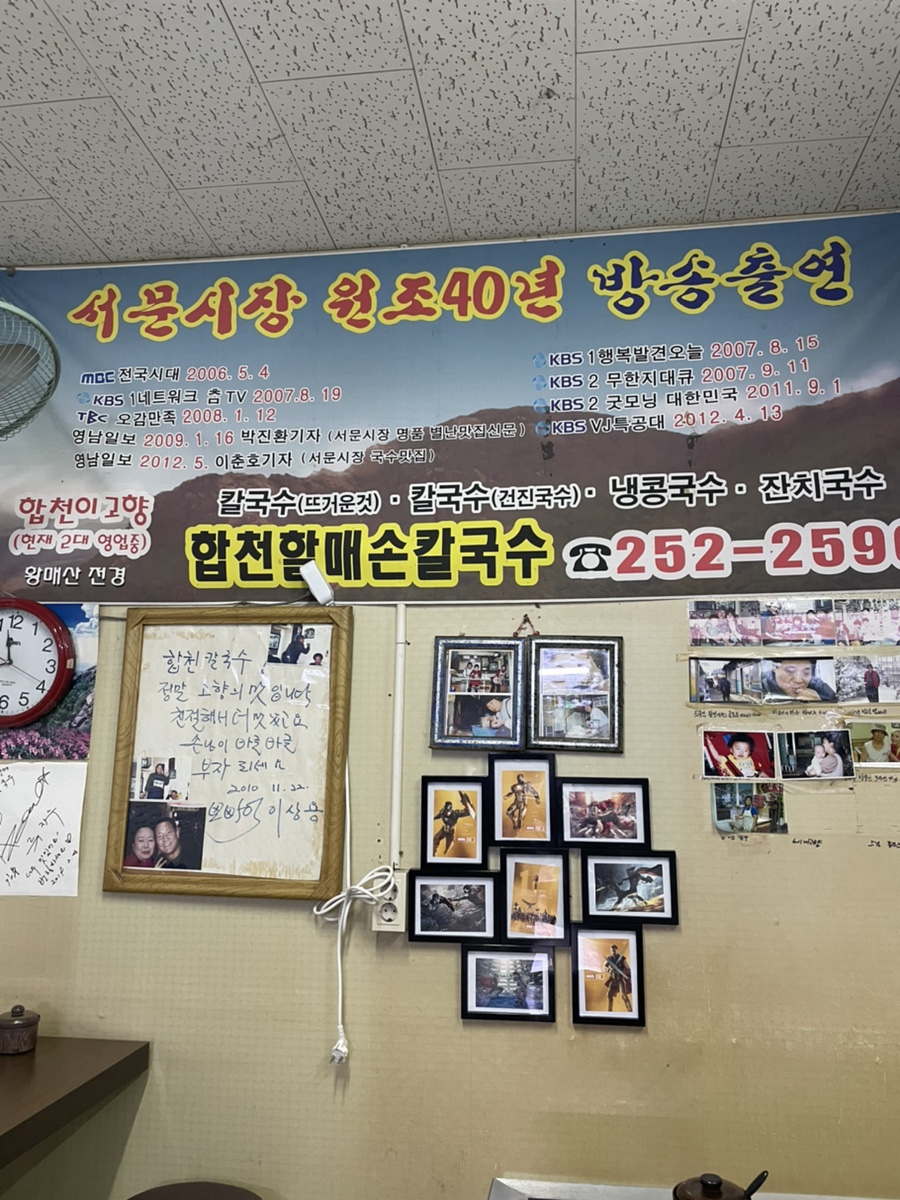 서문시장 원조40년 방송출연
MBC 전국시대 2006. 5. 4
KBS 1네트워크 춉TV 2007.8. 19
TBC 오감만족 2008. 1. 12
영남일보 2009. 1. 16 박진환기자 (서문시장 명품 별난맛집신문)
영남일보 2012. 5. 이춘호기자 (서문시장 국수맛집)
KBS 1행복발견오늘 2007. 8. 15
KBS 2 무한지대큐 2007. 9. 11
KBS 2 굿모닝 대한민국 2011. 9. 1
KBS VJ특공대 2012. 4. 13
합천이고향
(현재 2대 영업중)
왕매산 전경
칼국수(뜨거운것) · 칼국수(건진국수) · 냉콩국수 · 잔치국수
합천할매손칼국수 ☎252-2590
12
1
2
3
4
5
6
합천 칼국수
정말 고향의 맛 입니다
친절해서 더 맛 있고요
손님이 바글바글
부자 되세요
2010 11. 22.
뽀빠이 이상용